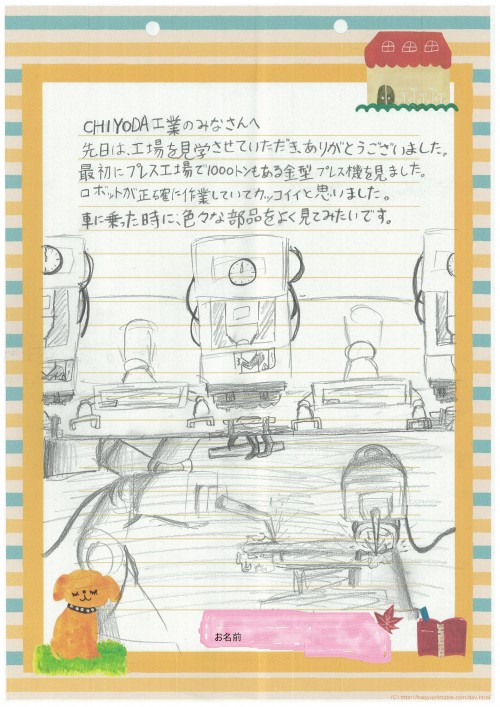 CHIYODA工業のみなさんへ
先日は、工場を見学させていただき、ありがとうございました。
最初にプレス工場で1000トンもある金型プレス機を見ました。
ロボットが正確に作業していてカッコイイと思いました。
車に乗った時に、色々な部品をよく見てみたいです。
お名前